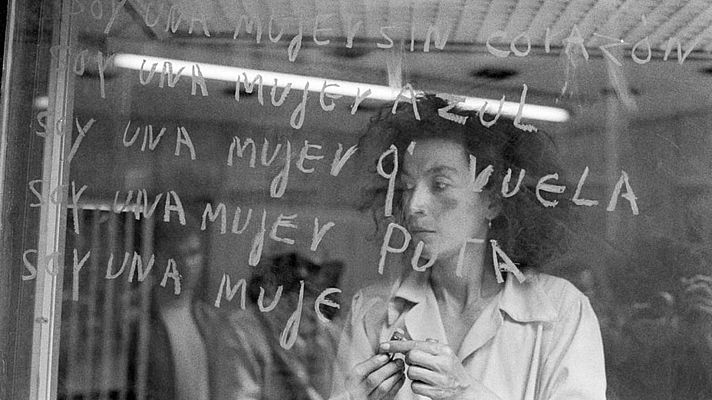 SOY UNA MUJER SIN CORAZÓN
SOY UNA MUJER AZUL
SOY UNA MUJER Q' VUELA
SOY UNA MUJER PUTA
SOY UNA MUJE